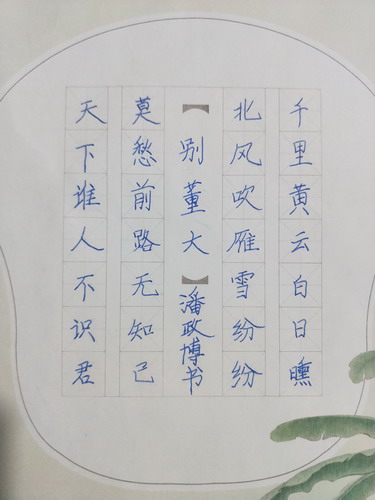 千里黄云白日曛
北风吹雁雪纷纷
【别董大】潘政博书
莫愁前路无知己
天下谁人不识君